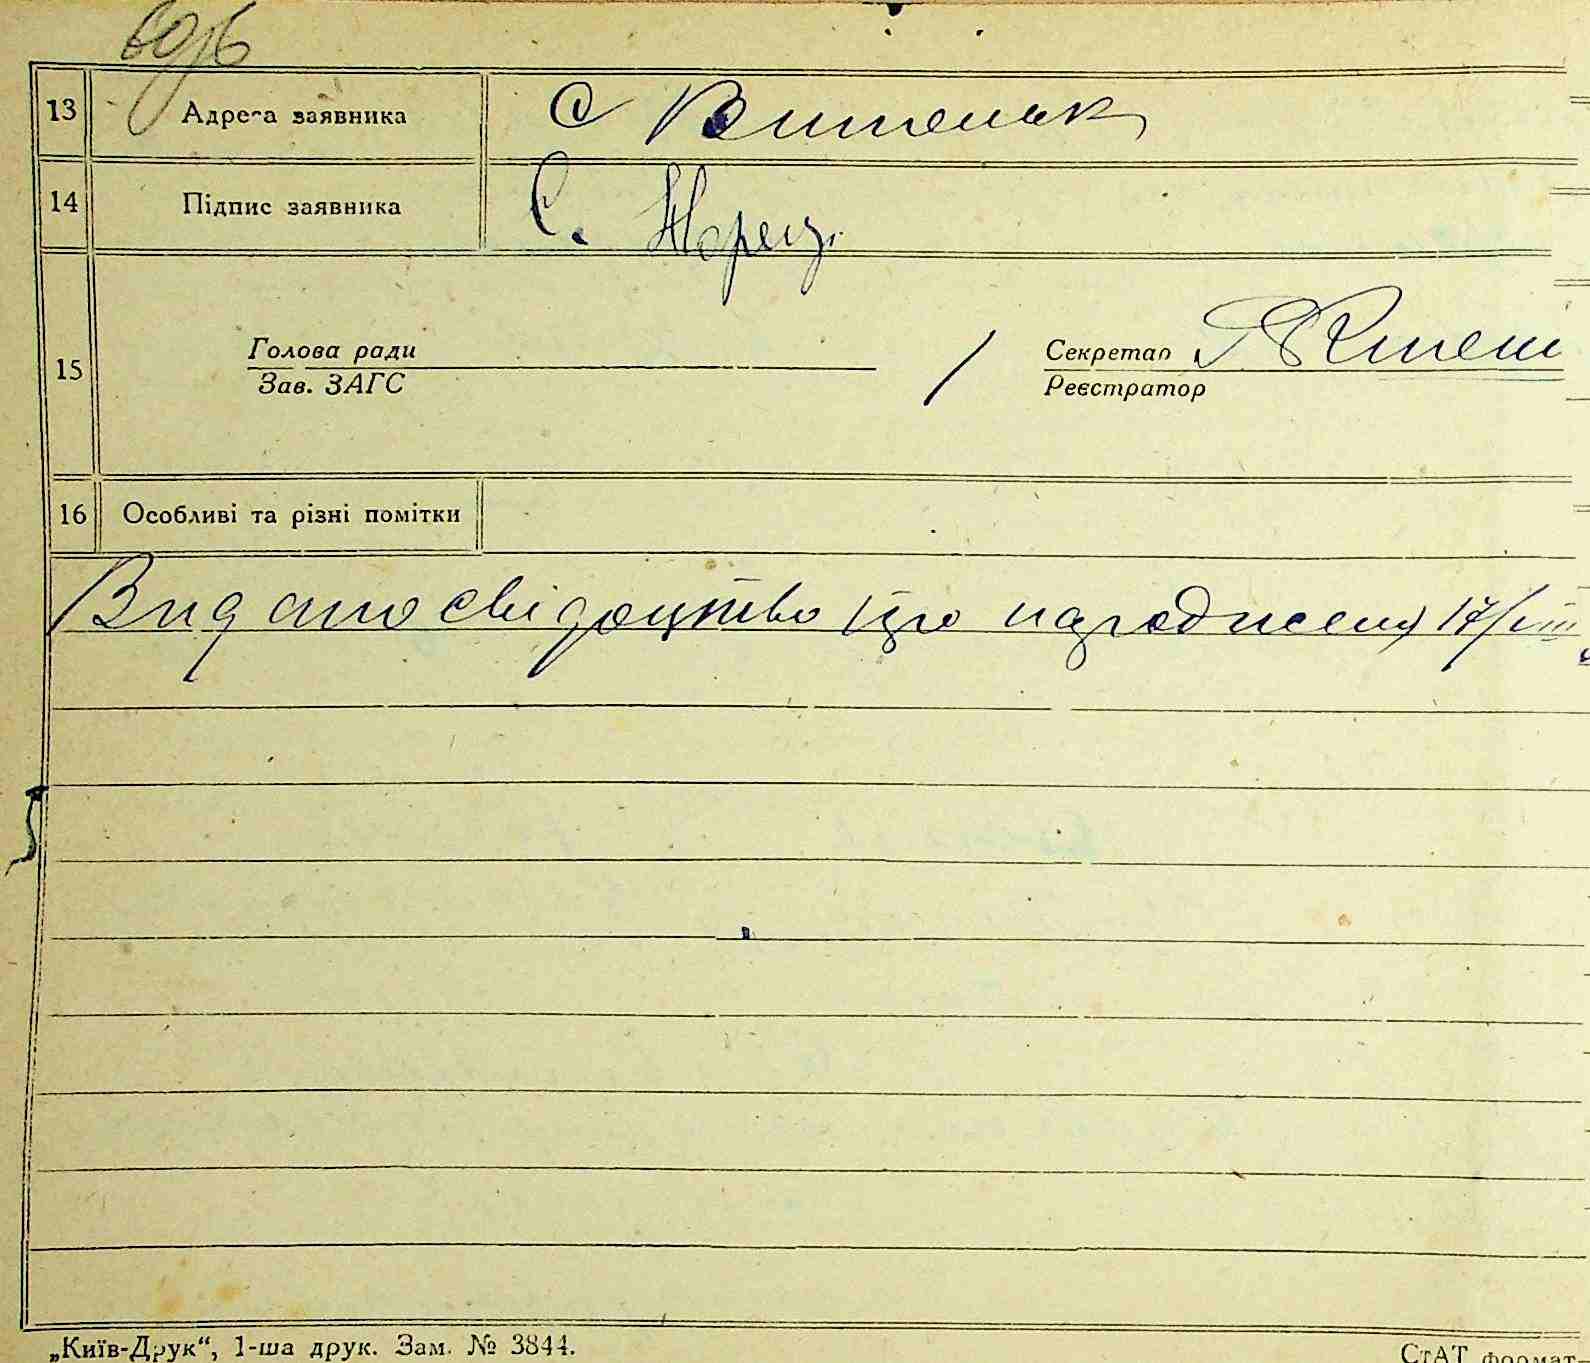 13 Адреса заявника с Витенск
14 Підпис заявника С.
15 Голова ради Секретар
Зав. ЗАГС Реєстратор
16 Особливі та різні помітки
Видано свідоцтво про народження 17/VIII
„Київ-Друк“, 1-ша друк. Зам. № 3844. СтАТ формат-